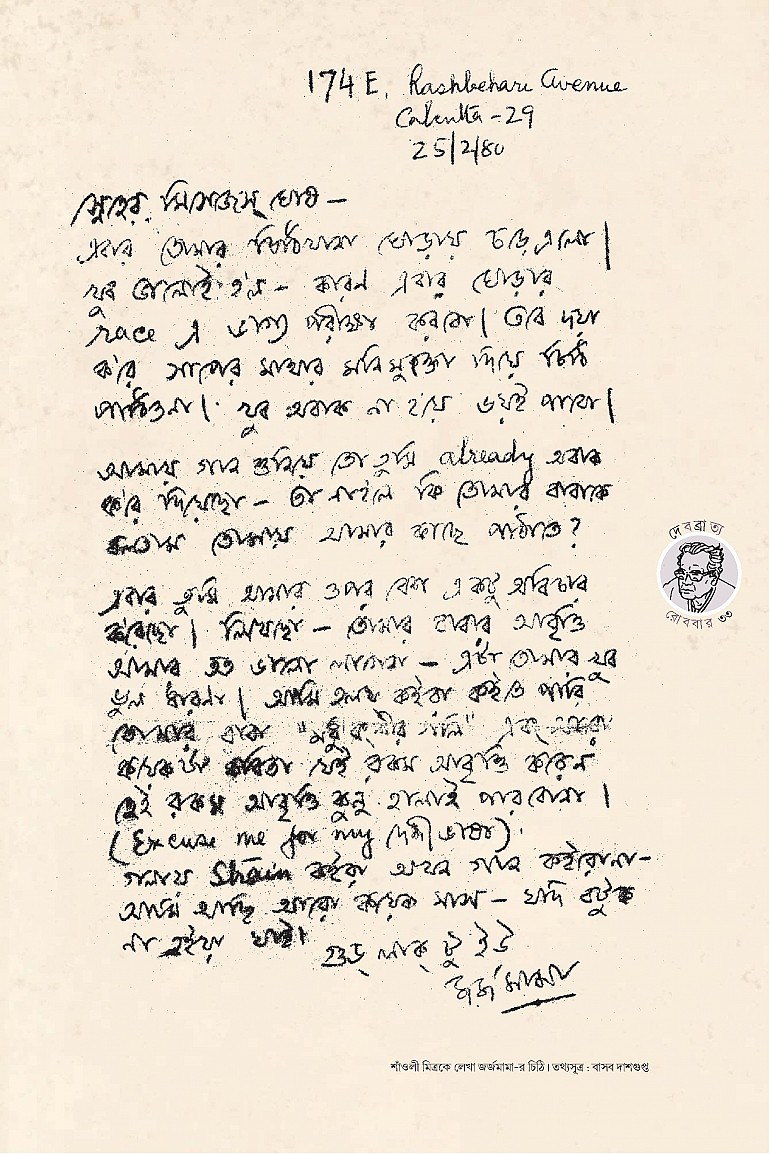 174 E, Rashbehari Avenue
Calcutta - 29
25/2/80
স্নেহের মিসেজস্ ঘোষ —
এবার তোমার চিঠিখানা ঘোড়ায় চড়ে এলো।
খুব ভালোই হ'ল - কারন এবার ঘোড়ার
race এ ভাগ্য পরীক্ষা করবো। তবে দয়া
ক'রে সাপের মাথার মনি মুক্তা দিয়ে চিঠি
পাঠিওনা। খুব অবাক না হয়ে ভয়ই পাবো।
আমায় গান শুনিয়ে তো তুমি already অবাক
ক'রে দিয়েছো - তা নাইলে কি তোমার বাবাকে
বলতাম তোমায় আমার কাছে পাঠাতে?
এবার তুমি আমার ওপর বেশ একটু অবিচার
করেছো। লিখেছো - তোমার বাবার আবৃত্তি
আমার অত ভালো লাগেনা - এটা তোমার খুব
ভুল ধারনা। আমি হলপ কইরা কইতে পারি
তোমার বাবা "মধু বংশীর গলি" এবং আরো
কয়েকটা কবিতা যেই রকম আবৃত্তি করেন
হেই রকম আবৃত্তি কুনু হালাই পারবোনা।
(Excuse me for my দেশী ভাষা)।
গলায় Strain কইরা অখন গান কইরোনা -
আমি আছি আরো কয়েক মাস - যদি বটুক
না হইয়া যাই।
গুড্ লাক্ টু ইউ
জর্জ মামা
দেবব্রাত্য
রোববার ৩৩
শাঁওলী মিত্রকে লেখা জর্জমামা-র চিঠি। তথ্যসূত্র : বাসব দাশগুপ্ত